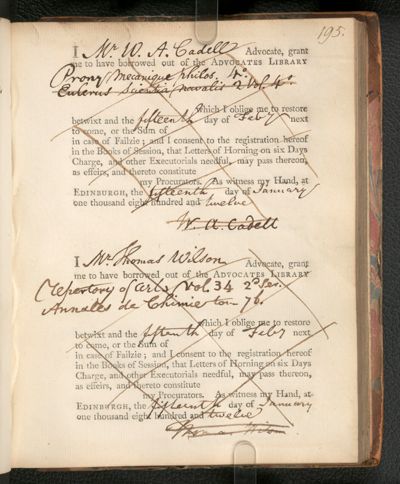 195.
I Mr W. A. Cadell Advocate, grant
me to have borrowed out of the ADVOCATES LIBRARY
Prony mecanique philos. 4o.
Eulerus Scientia navalis 2 vol. 4o.
which I oblige me to restore
betwixt and the fifteenth day of Feby next
to come, or the Sum of
in case of Failzie; and I consent to the registration hereof
in the Books of Session, that Letters of Horning on six Days
Charge, and other Executorials needful, may pass thereon,
as effeirs, and thereto constitute
my Procurators. As witness my Hand, at
EDINBURGH, the fifteenth day of January
one thousand eight hundred and twelve
W. A. Cadell
I Mr Thomas Wilson Advocate, grant
me to have borrowed out of the ADVOCATES LIBRARY
Repertory of arts vol. 34 2d Ser.
Annales de Chimie tom 76.
which I oblige me to restore
betwixt and the fifteenth day of Feby next
to come, or the Sum of
in case of Failzie; and I consent to the registration hereof
in the Books of Session, that Letters of Horning on six Days
Charge, and other Executorials needful, may pass thereon,
as effeirs, and thereto constitute
my Procurators. As witness my Hand, at
EDINBURGH, the fifteenth day of January
one thousand eight hundred and twelve
Thomas Wilson